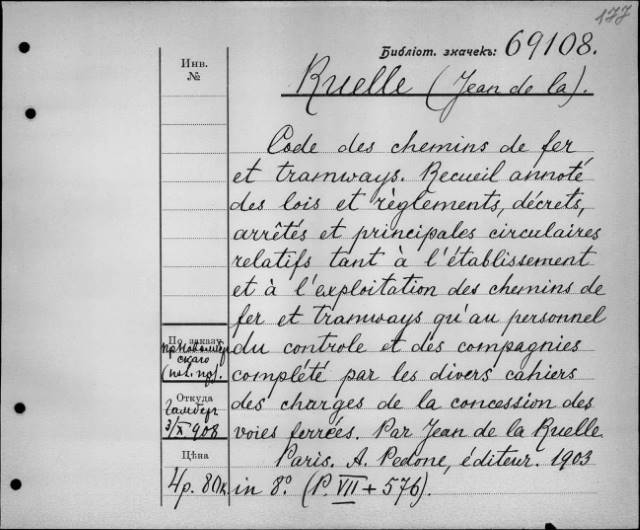 177
Библіот. значекъ: 69108.
Инв.
№
Ruelle (Jean de la).
Code des chemins de fer
et tramways. Recueil annoté
des lois et règlements, décrets,
arrêtés et principales circulaires
relatifs tant à l'établissement
et à l'exploitation des chemins de
fer et tramways qu'au personnel
du controle et des compagnies
complété par les divers cahiers
des charges de la concession des
voies ferrées. Par Jean de la Ruelle.
Paris. A. Pedone, éditeur. 1903
in 8° (P. VII + 576).
По заказу
скаго
Откуда
Гамбер
3/X 908
Цѣна
4р. 80к